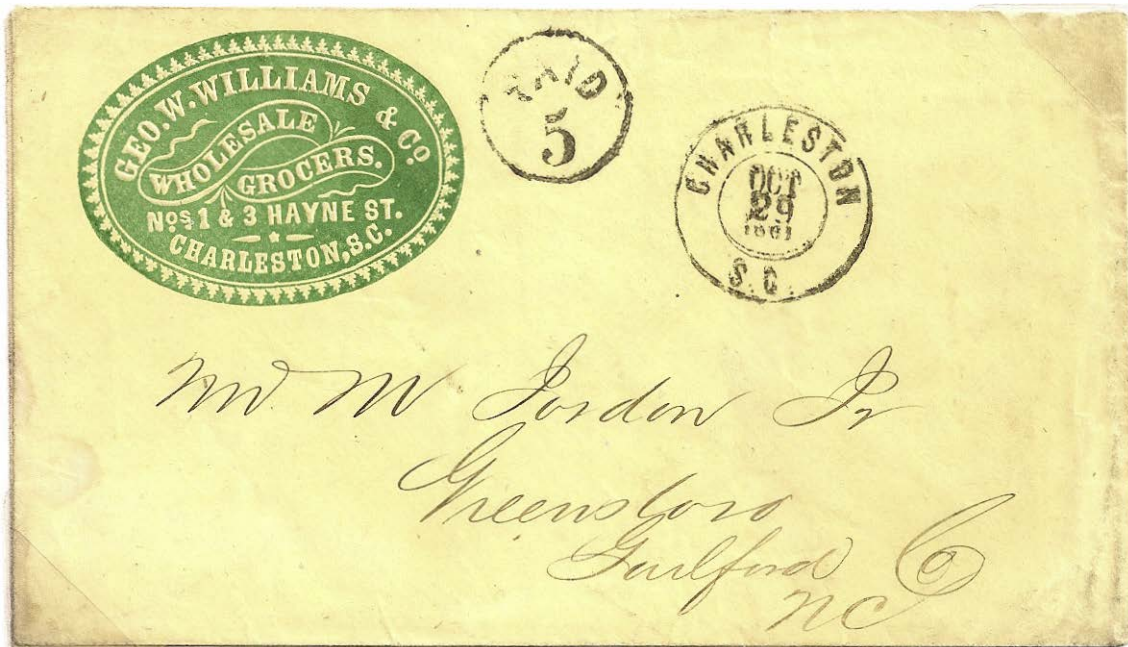 GEO. W. WILLIAMS & Co
WHOLESALE
GROCERS.
Nos. 1 & 3 HAYNE ST.
CHARLESTON, S.C.
PAID
5
CHARLESTON
OCT
29
1861
S. C.
M Jordon Jr
Greensboro
Guilford Co
NC